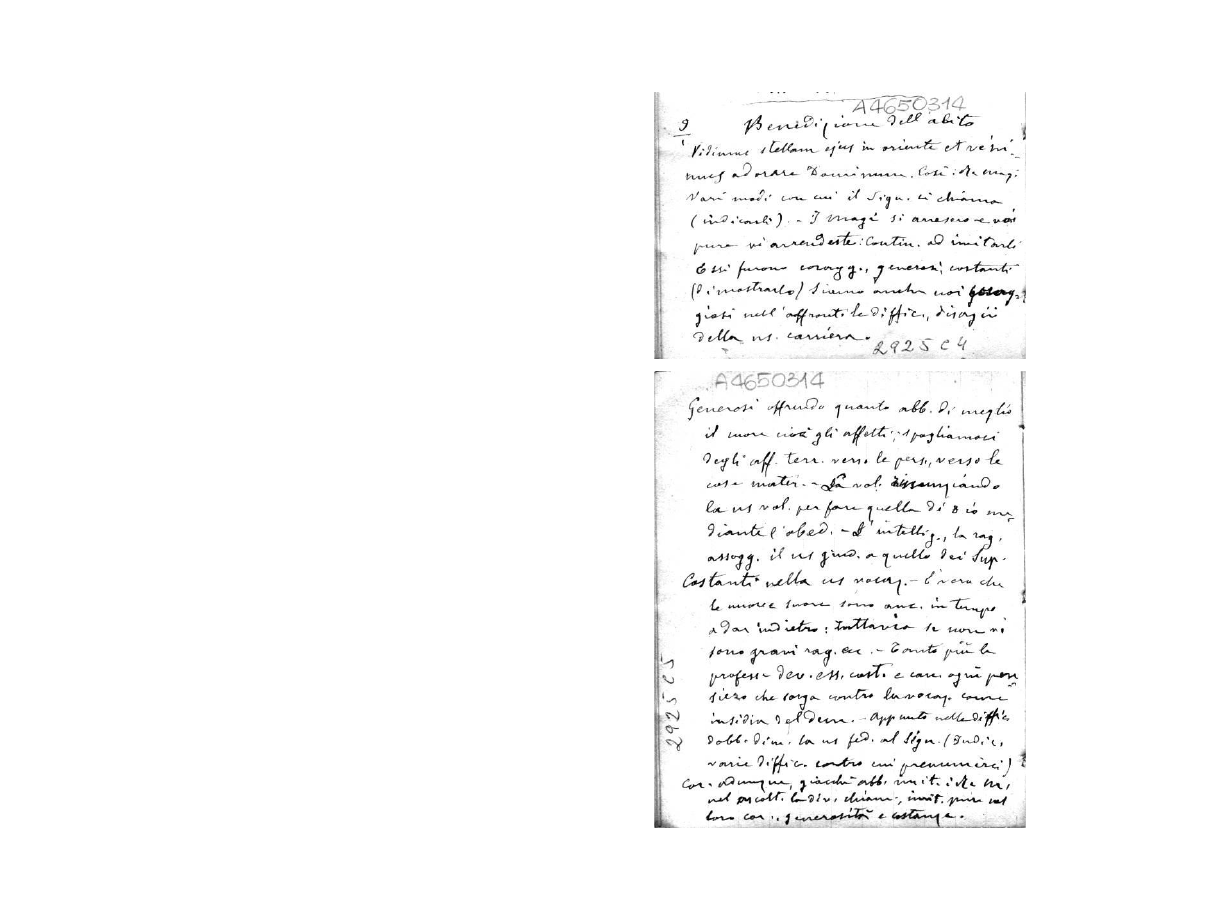 A4650314
9 Benedizione dell'abito
Vidimus stellam ejus in oriente et veni-
mus adorare Dominum. Così i Re magi.
Vari modi con cui il Sign. ci chiama
(indicarli). - I magi si arresero e voi
pure vi arrendeste: Contin. ad imitarli
Essi furono coragg., generosi, costanti
(Dimostrarlo) Siamo anche noi corag-
giosi nell'affront. le diffic., disagii
della ns. carriera.
2925 C4
A4650314
Generosi offrendo quanto abb. di meglio
il cuore cioè gli affetti; spogliamoci
degli aff. terr. verso le pers., verso le
cose mater. - La vol. rinunziando
la ns vol. per fare quella di Dio me-
diante l'obed. - L'intellig., la rag.
assogg. il ns giud. a quello dei Sup.
Costanti nella ns vocaz. - È vero che
le nuove suore sono anc. in tempo
a dar indietro; tuttavia se non vi
sono gravi rag. ecc. - Tanto più le
professe dev. ess. cost. e cac. ogni pen-
siero che sorga contro la vocaz. come
insidia del dem. - Appunto nelle diffic.
dobb. dim. la ns fed. al Sign. (Indic.
varie diffic. contro cui premunirci)
Cor. adunque, giacchè abb. imit. i Re m.
nel ascolt. la div. chiam., imit. pure nel
loro cor., generosità e costanza.
2925 C5